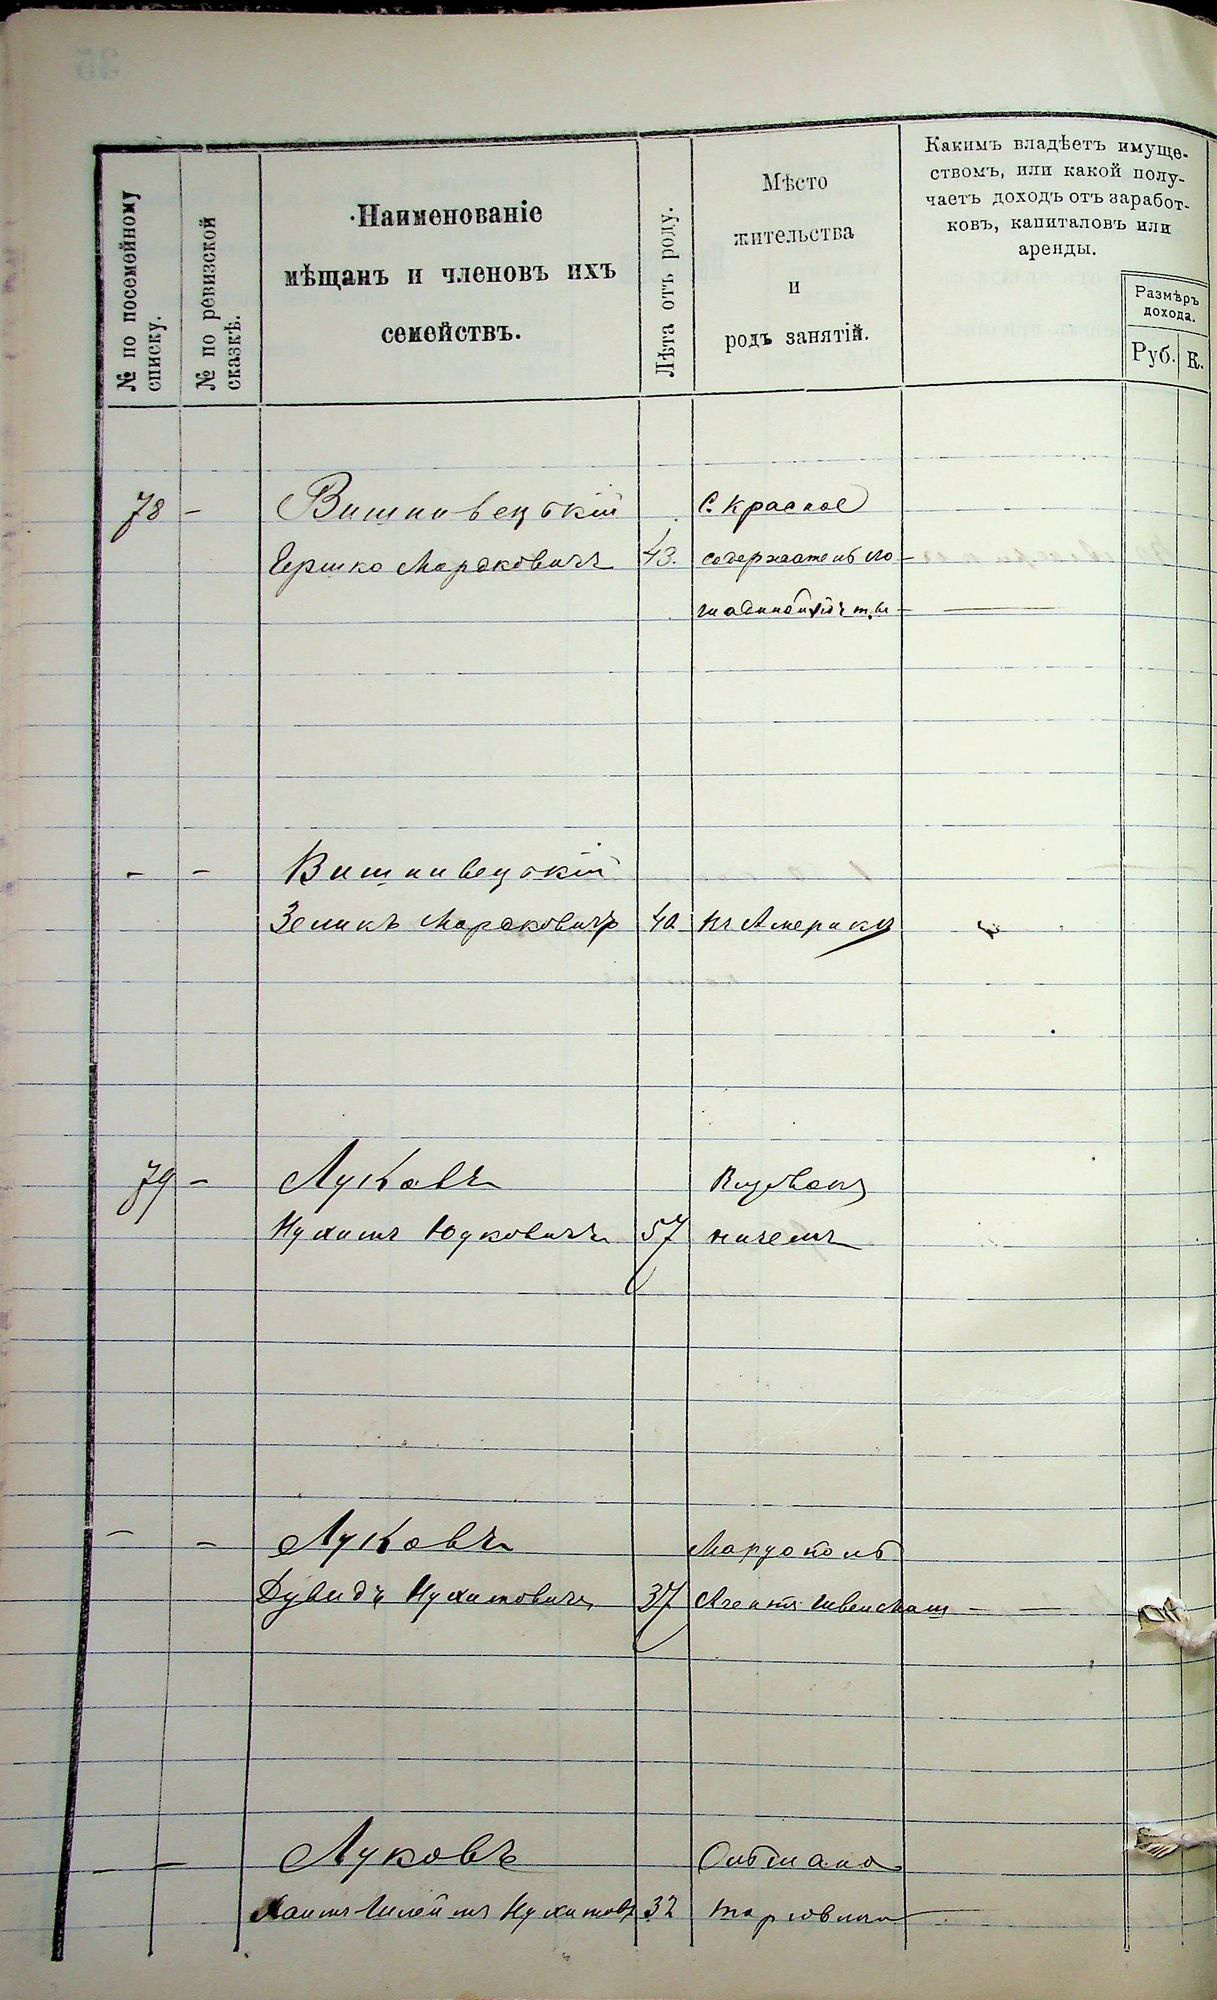 № по посемейному списку.
№ по ревизской сказкѣ.
Наименованіе
мѣщанъ и членовъ ихъ
семействъ.
Лѣта отъ роду.
Мѣсто
жительства
и
родъ занятій.
Какимъ владѣетъ имуще-
ствомъ, или какой полу-
чаетъ доходъ отъ заработ-
ковъ, капиталовъ или
аренды.
Размѣръ
дохода.
Руб. К.
78 - Вишневецькій С. Красное
Гершко Мордковичъ 43. содержатель ло-
- - Вишнивецькій
Зеликъ Мордковичъ 40 въ Америкѣ
79 - Луковъ
Нухимъ Юдковичъ 57
- - Луковъ Маріуполь
Дувидъ Нухимовичъ 37 Агентъ швейныхъ маш -
- - Луковъ
Хаимъ Нухимовъ 32 торговля